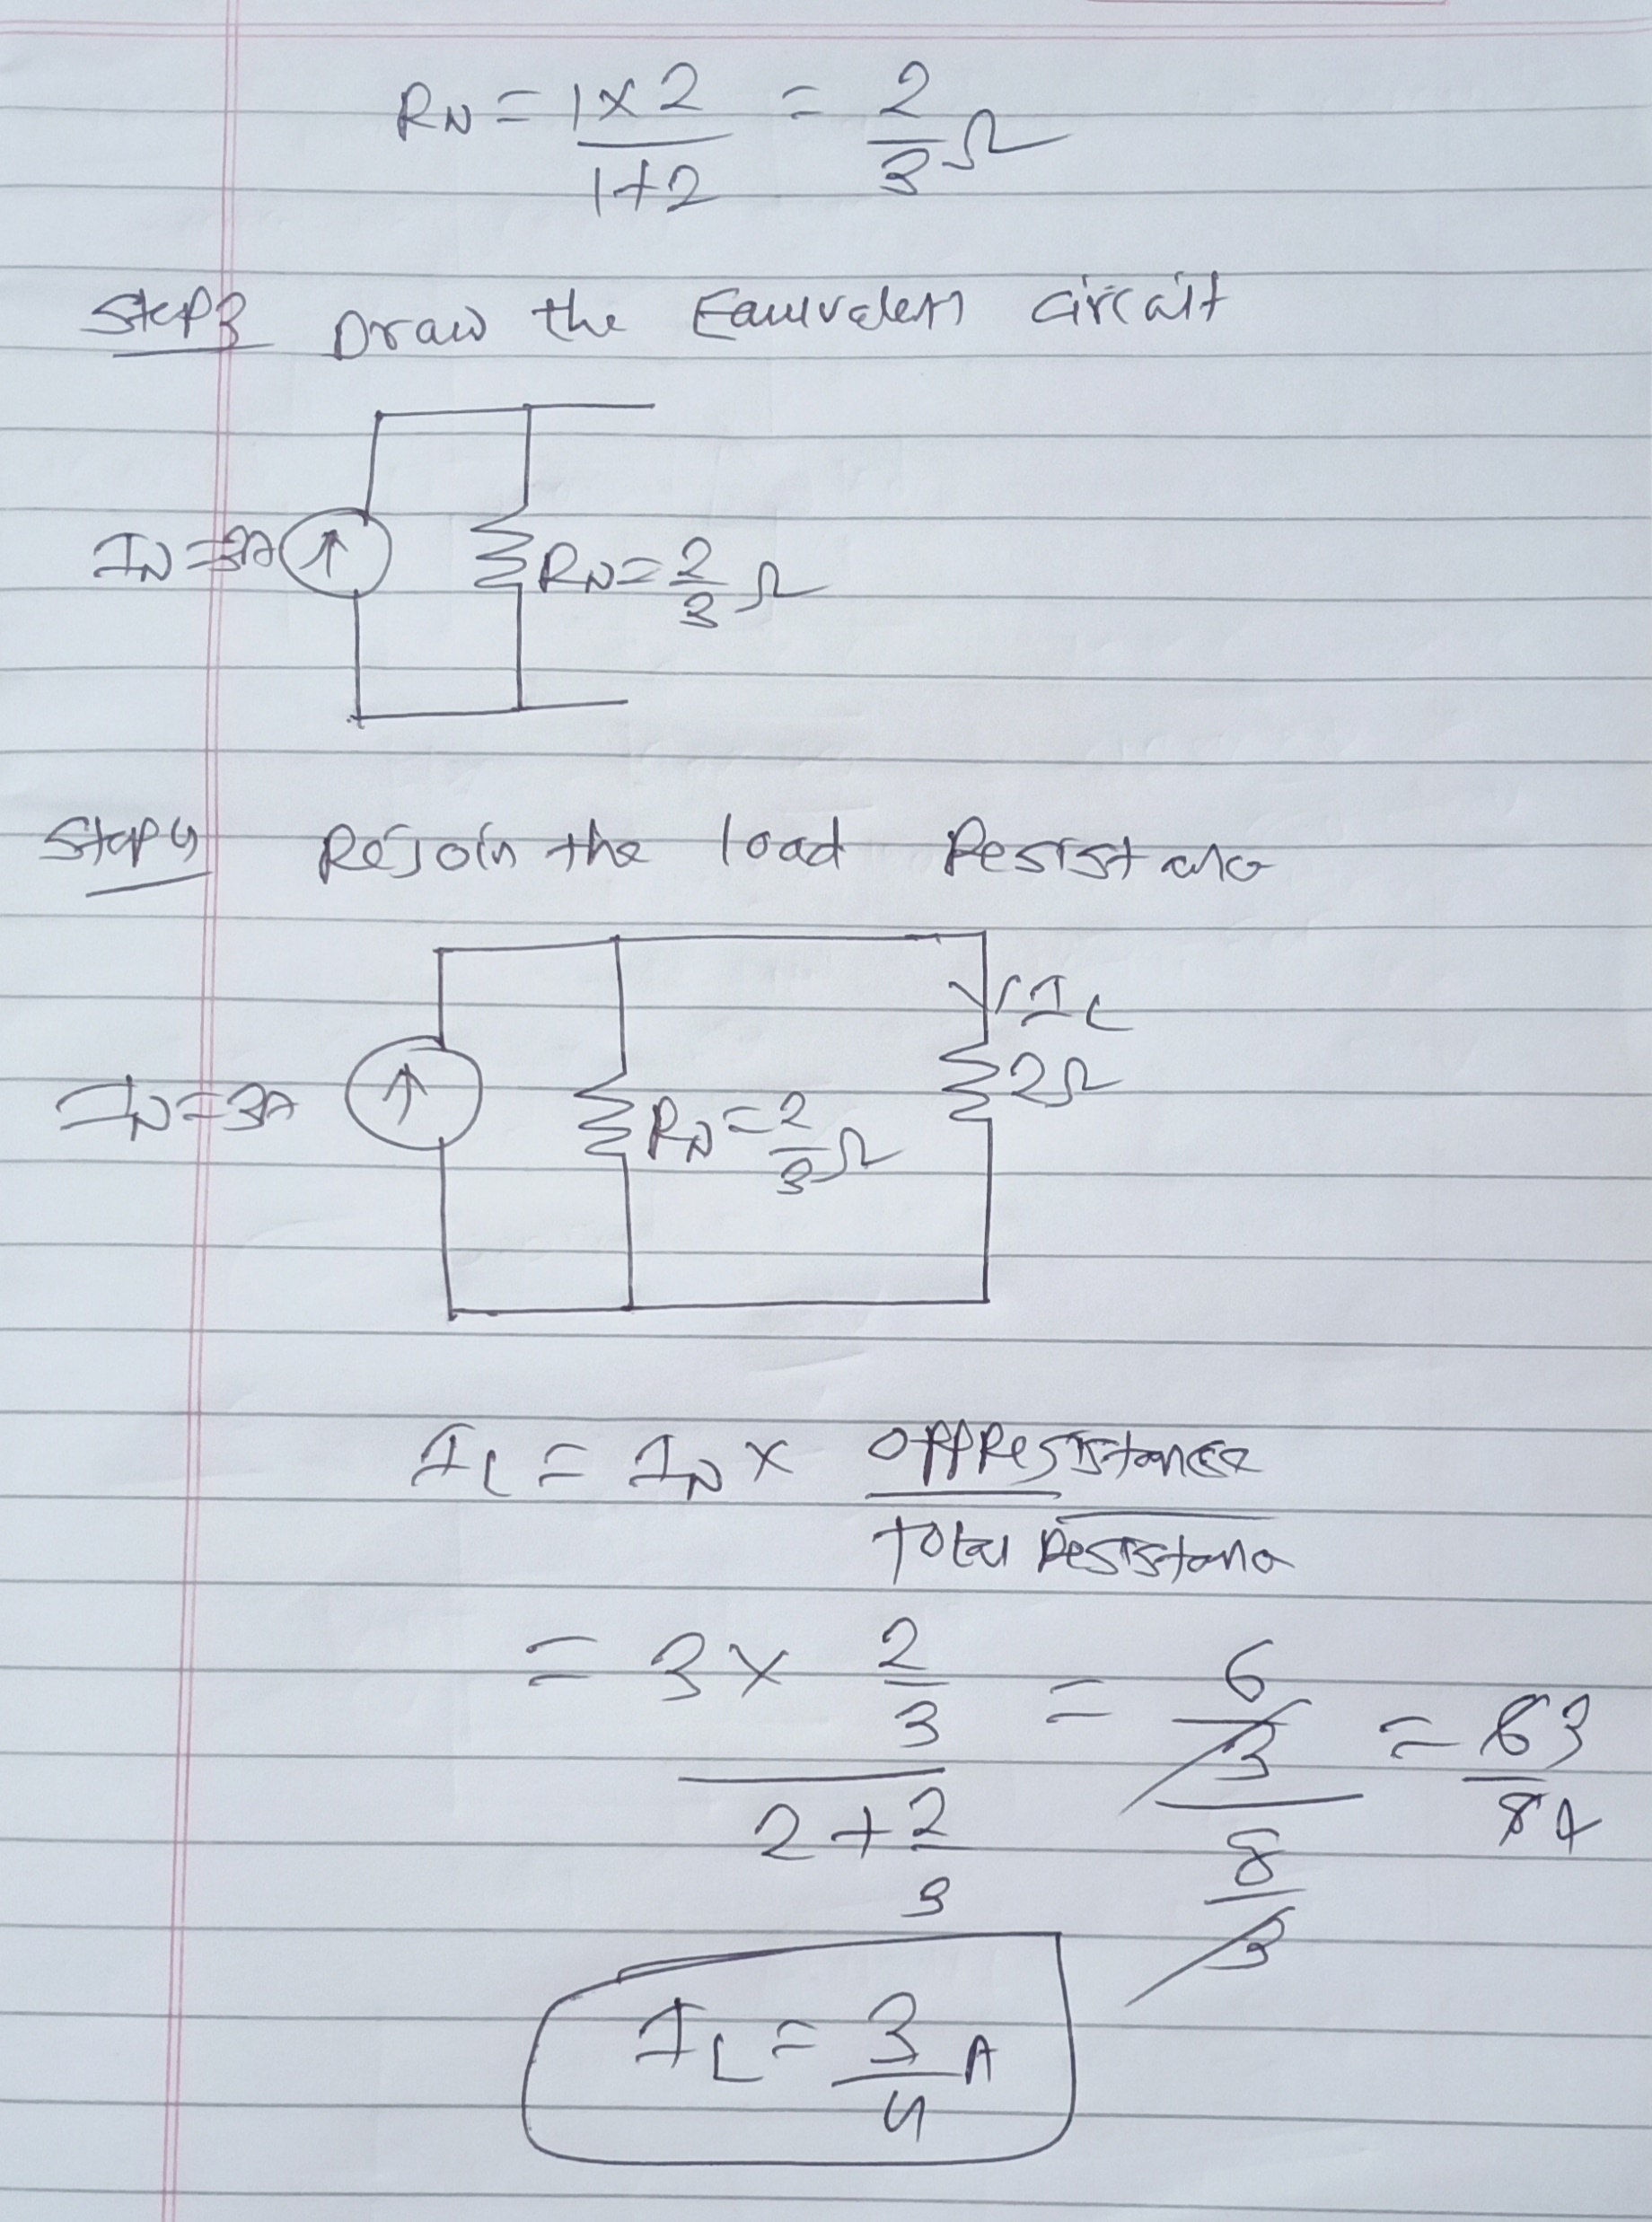 RN = 1×2 / 1+2 = 2/3 Ω
Step3 Draw the Equivalent circuit
IN=3A RN=2/3 Ω
Step4 Rejoin the load Resistance
IL
2Ω
IN=3A RN=2/3 Ω
IL = IN × opp Resistance
Total Resistance
= 3 × 2/3 / 2+2/3 = 6/3 / 8/3 = 6 3 / 8 4
IL = 3/4 A